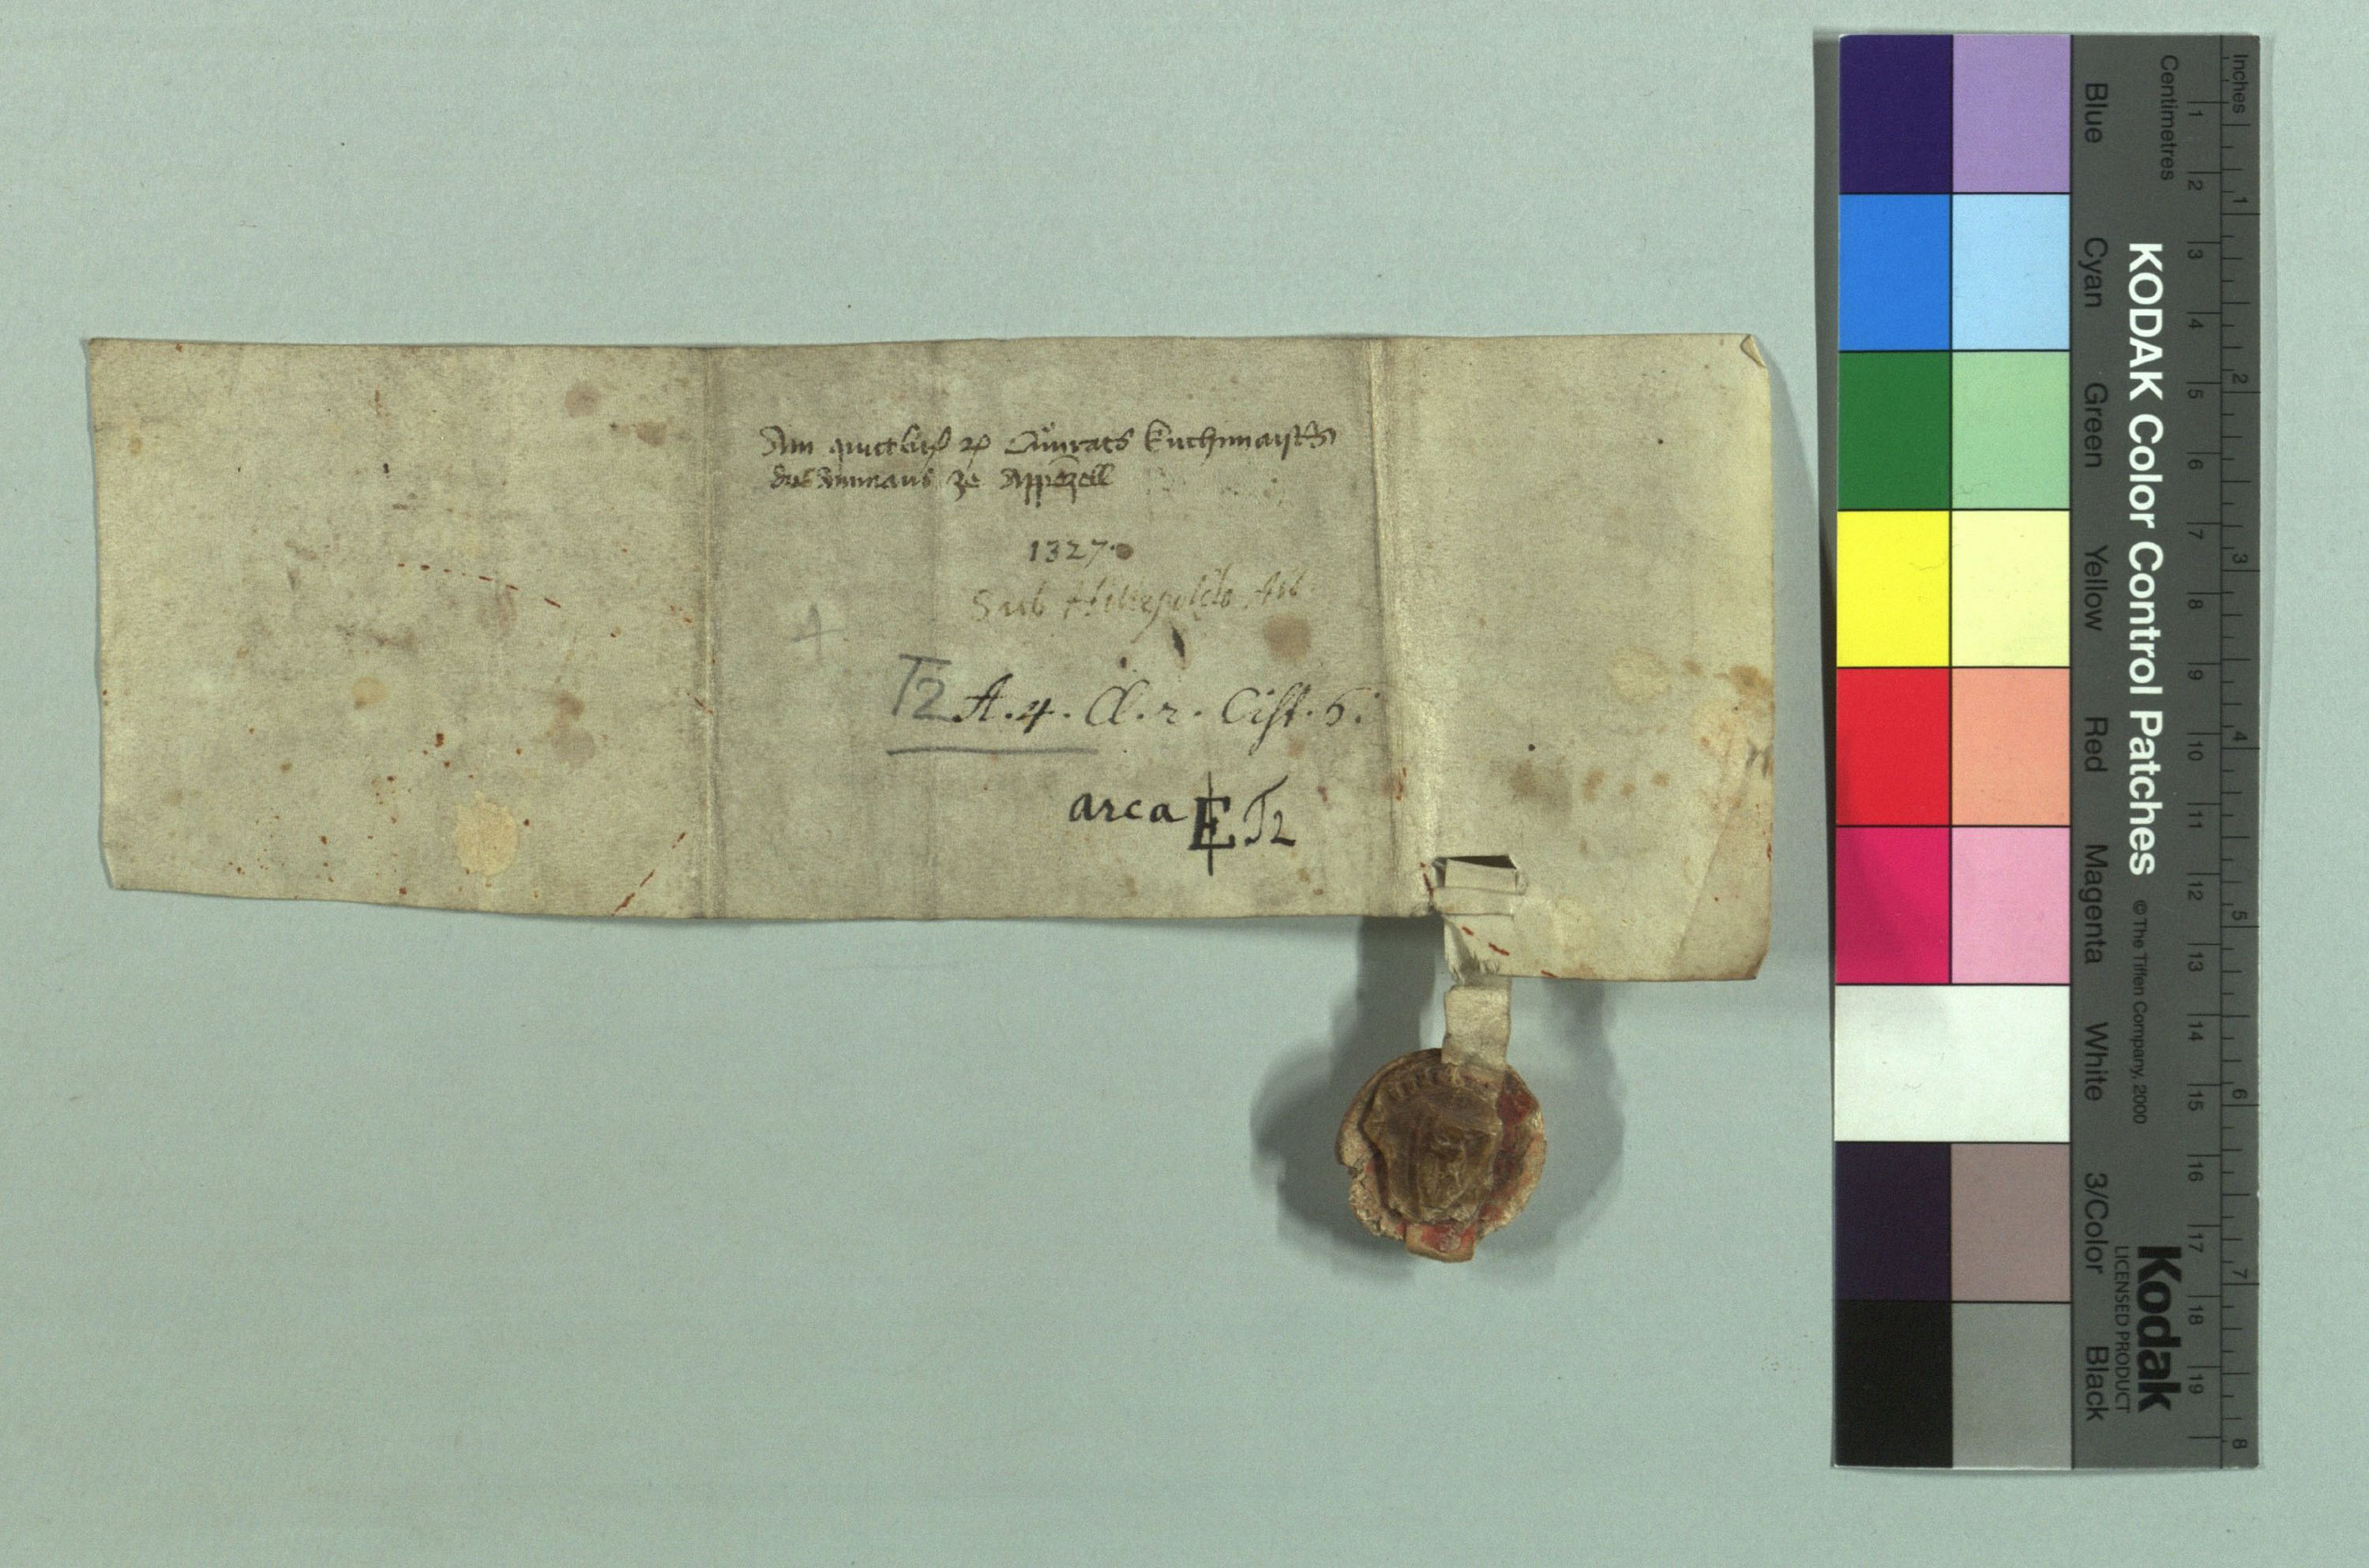 Ain quictbrief ꝛc Cůnrats kuchimaisters
des ammans ze Appezell
1327.
Sub Hiltepoldo Abb.
T2 A.4. Cl. 2. Cist. 6.
arca E T2
Inches
Centimetres
1 2 3 4 5 6 7 8 9 10 11 12 13 14 15 16 17 18 19
1 2 3 4 5 6 7 8
KODAK Color Control Patches © The Tiffen Company, 2000
Kodak
LICENSED PRODUCT
Blue Cyan Green Yellow Red Magenta White 3/Color Black